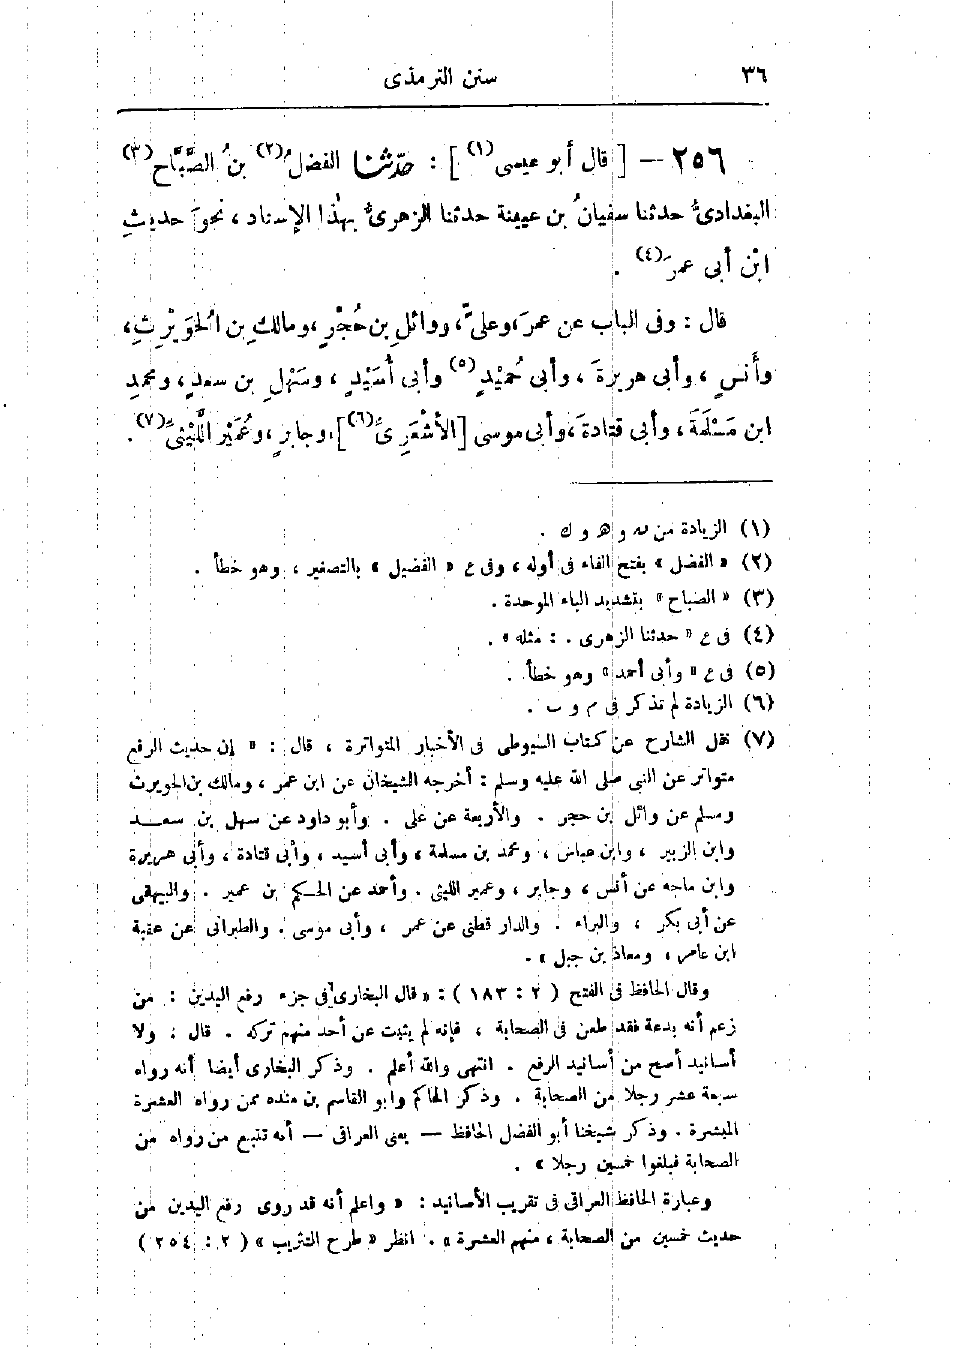 ٣٦
سنن الترمذى
٢٥٦ — [ قال أبو عيسى (١) ] : حدّثنا الفضلُ (٢) بنُ الصَّبَّاحِ (٣)
البغدادىُّ حدثنا سفيانُ بن عيينة حدثنا الزهرىُّ بهذا الإسناد ، نحوَ حديثِ
ابْن أبى عمرَ (٤) .
قال : وفى الباب عن عمرَ ، وعلىٍّ ، ووائلِ بن حُجْرٍ ، ومالكِ بن الْحُوَيْرِثِ ،
وأَنسٍ ، وأبى هريرةَ ، وأبى حُمَيْدٍ (٥) وأبى أُسَيْدٍ ، وسَهْلِ بن سعدٍ ، ومحمدِ
ابن مَسْلَمَةَ ، وأبى قتادةَ ، وأبى موسى [ الأشْعَرِىِّ (٦) ] ، وجابرٍ ، وعُمَيْرٍ اللَّيْثِىِّ (٧) .
(١) الزيادة من ـه و هـ و ك .
(٢) « الفضل » بفتح الفاء فى أوله ، وفى ع « الفضيل » بالتصغير ، وهو خطأ .
(٣) « الصباح » بتشديد الباء الموحدة .
(٤) فى ع « حدثنا الزهرى . : مثله » .
(٥) فى ع « وأبى أحمد » وهو خطأ .
(٦) الزيادة لم تذكر فى م و ب .
(٧) نقل الشارح عن كتاب السيوطى فى الأخبار المتواترة ، قال : « إن حديث الرفع
متواتر عن النبى صلى الله عليه وسلم : أخرجه الشيخان عن ابن عمر ، ومالك بن الحويرث
ومسلم عن وائل بن حجر . والأربعة عن على . وأبو داود عن سهل بن سعد
وابن الزبير ، وابن عباس ، ومحمد بن مسلمة ، وأبى أسيد ، وأبى قتادة ، وأبى هريرة
وابن ماجه عن أنس ، وجابر ، وعمير الليثى . وأحمد عن الحكم بن عمير . والبيهقى
عن أبى بكر ، والبراء . والدار قطنى عن عمر ، وأبى موسى . والطبرانى عن عقبة
ابن عامر ، ومعاذ بن جبل » .
وقال الحافظ فى الفتح ( ٢ : ١٨٣ ) : « قال البخارى فى جزء رفع اليدين : من
زعم أنه بدعة فقد طعن فى الصحابة ، فإنه لم يثبت عن أحد منهم تركه . قال : ولا
أسانيد أصح من أسانيد الرفع . انتهى والله أعلم . وذكر البخارى أيضا أنه رواه
سبعة عشر رجلا من الصحابة . وذكر الحاكم وابو القاسم بن منده ممن رواه العشرة
المبشرة . وذكر شيخنا أبو الفضل الحافظ — يعنى العراقى — أنه تتبع من رواه من
الصحابة فبلغوا خمسين رجلا » .
وعبارة الحافظ العراقى فى تقريب الأسانيد : « واعلم أنه قد روى رفع اليدين من
حديث خمسين من الصحابة ، منهم العشرة » . انظر « طرح التثريب » ( ٢ : ٢٥٤ )